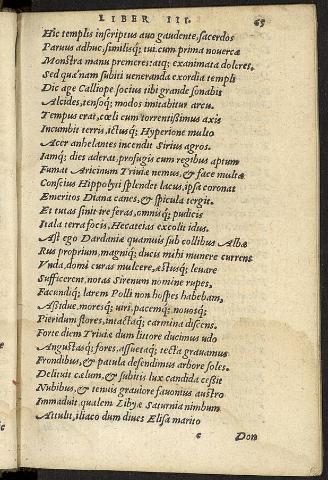 LIBER III. 65
Hic templis inscriptus auo gaudente, sacerdos
Paruus adhuc, similisq; tui. cum prima nouercæ
Monstra manu premeres: atq; exanimata doleres.
Sed quænam subiti ueneranda exordia templi
Dic age Calliope socius tibi grande sonabit
Alcides, tensoq; modos imitabitur arcu.
Tempus erat, cœli cum torrentißimus axis
Incumbit terris, ictusq; Hyperione multo
Acer anhelantes incendit Sirius agros.
Iamq; dies aderat, profugis cum regibus aptum
Fumat Aricinum Triuiæ nemus, & face multa
Conscius Hippolyti splendet lacus, ipsa coronat
Emeritos Diana canes, & spicula tergit.
Et tutas sinit ire feras, omnisq; pudicis
Itala terra focis, Hecateias excolit idus.
Ast ego Dardaniæ quamuis sub collibus Albæ
Rus proprium, magniq; ducis mihi munere currens
Vnda, domi curas mulcere, æstusq; leuare
Sufficerent, notas Sirenum nomine rupes,
Facundiq; larem Polli non hospes habebam,
Aßidue moresq; uiri, pacemq; nouosq;
Pieridum flores, intactaq; carmina discens.
Forte diem Triuiæ dum littore ducimus udo
Angustasq; fores, assuetaq; tecta grauamur
Frondibus, & patula defendimus arbore soles.
Delituit cœlum, & subitis lux candida ceßit
Nubibus, & tenuis grauiore fauonius austro
Immaduit, qualem Libyæ Saturnia nimbum
Attulit, iliaco dum diues Elisa marito
e Don